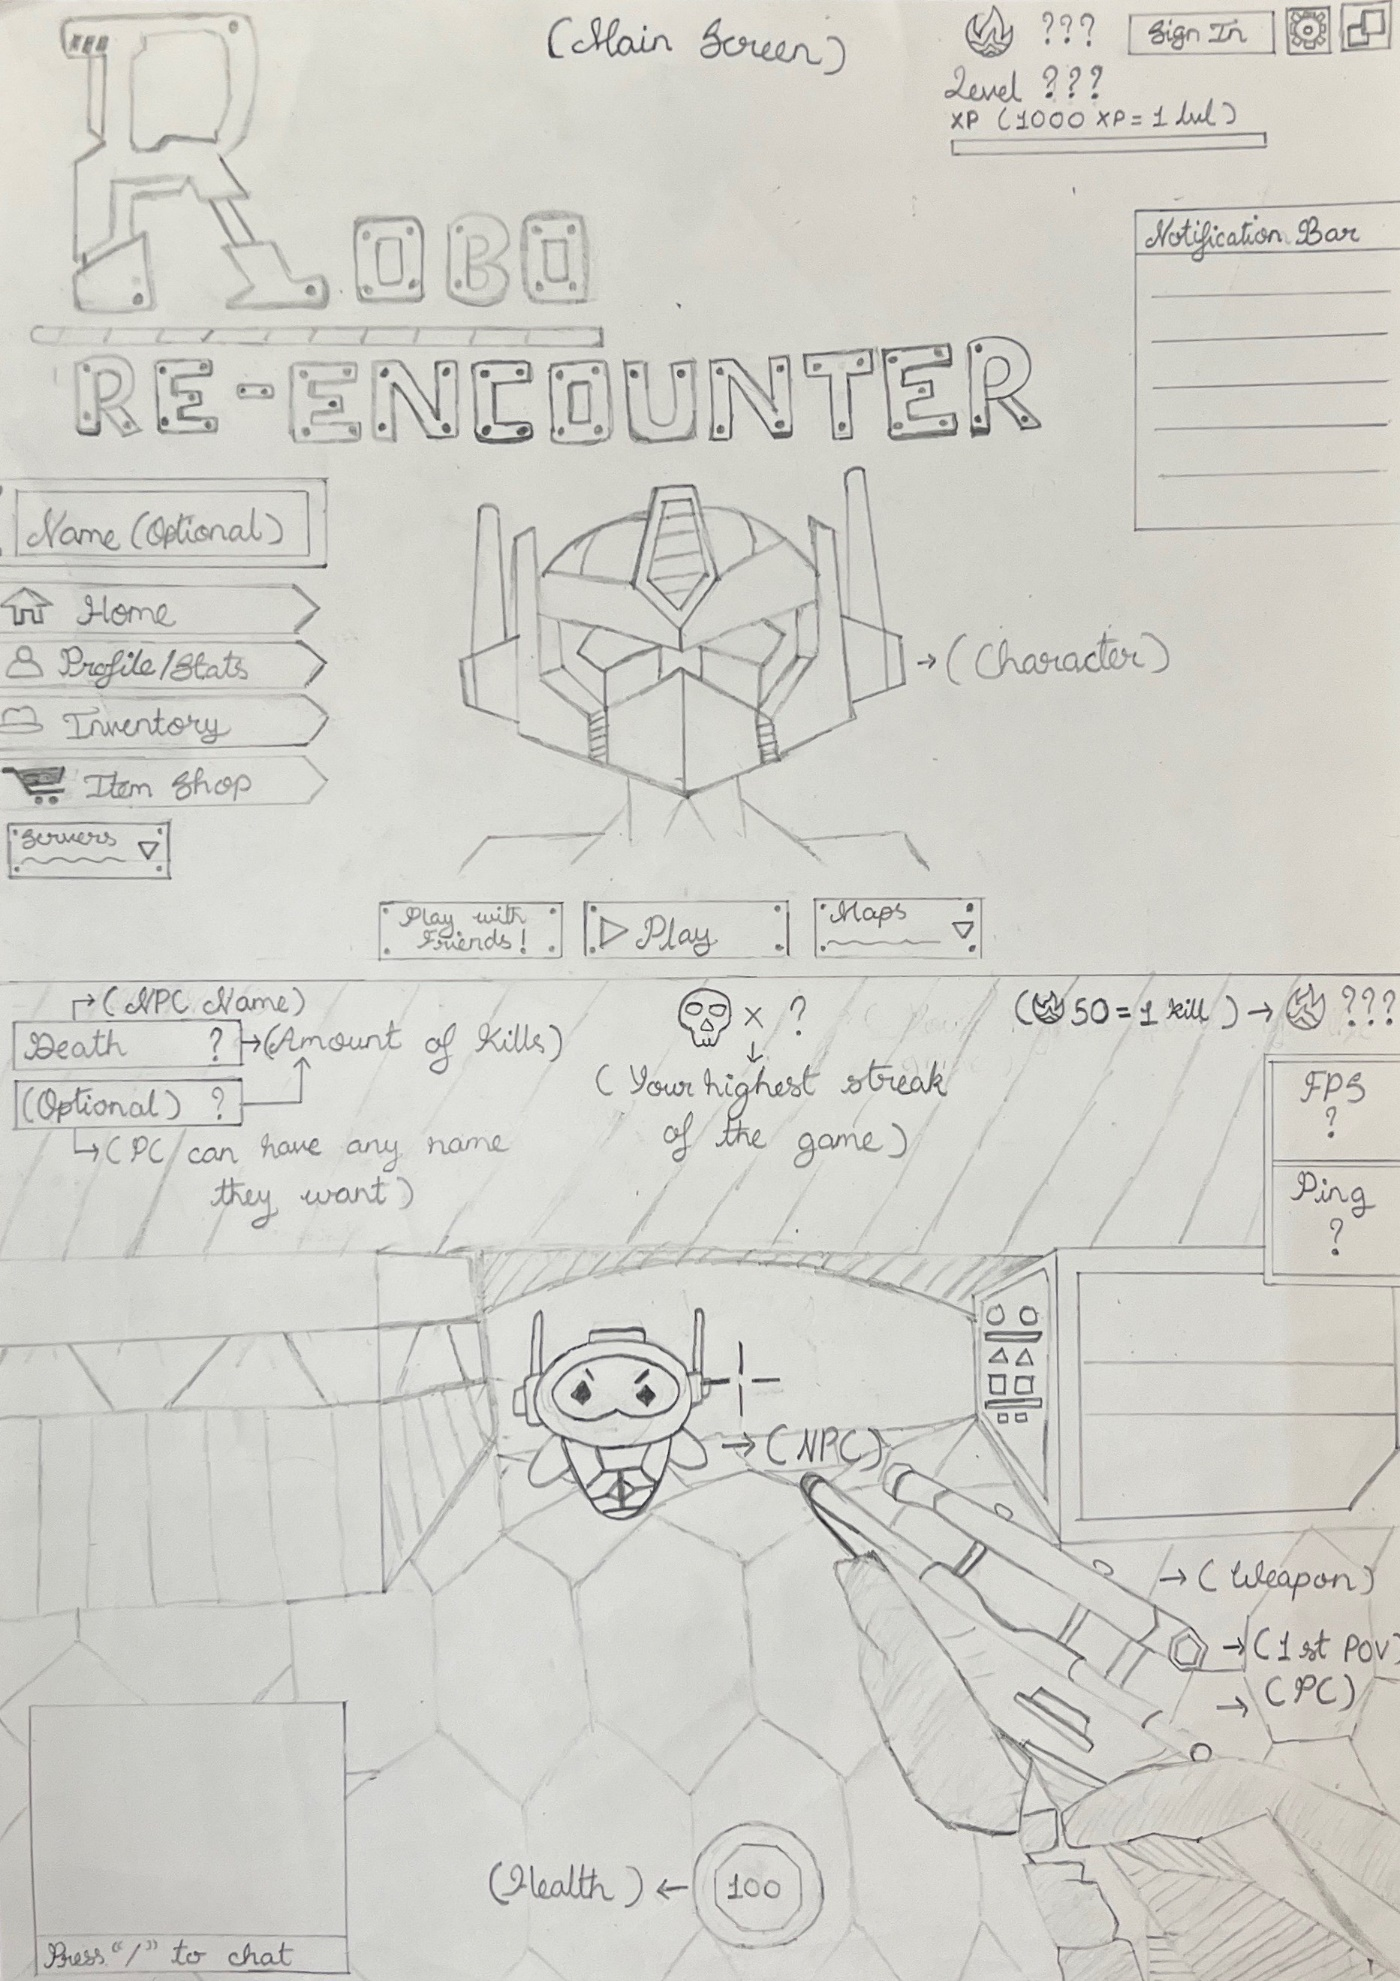 (Main Screen)
???
Sign In
Level ???
XP (1000 XP = 1 lvl)
ROBO
RE-ENCOUNTER
Notification Bar
Name (Optional)
Home
Profile/Stats
Inventory
Item Shop
Servers
→ (Character)
Play with
Friends!
Play
Maps
→ (NPC Name)
Death ? → (Amount of Kills)
(Optional) ?
→ (PC can have any name
they want)
x ?
(Your highest streak
of the game)
(50 = 1 kill) → ???
FPS
?
Ping
?
→ (NPC)
→ (Weapon)
→ (1st POV)
→ (PC)
(Health) ← 100
Press "/" to chat